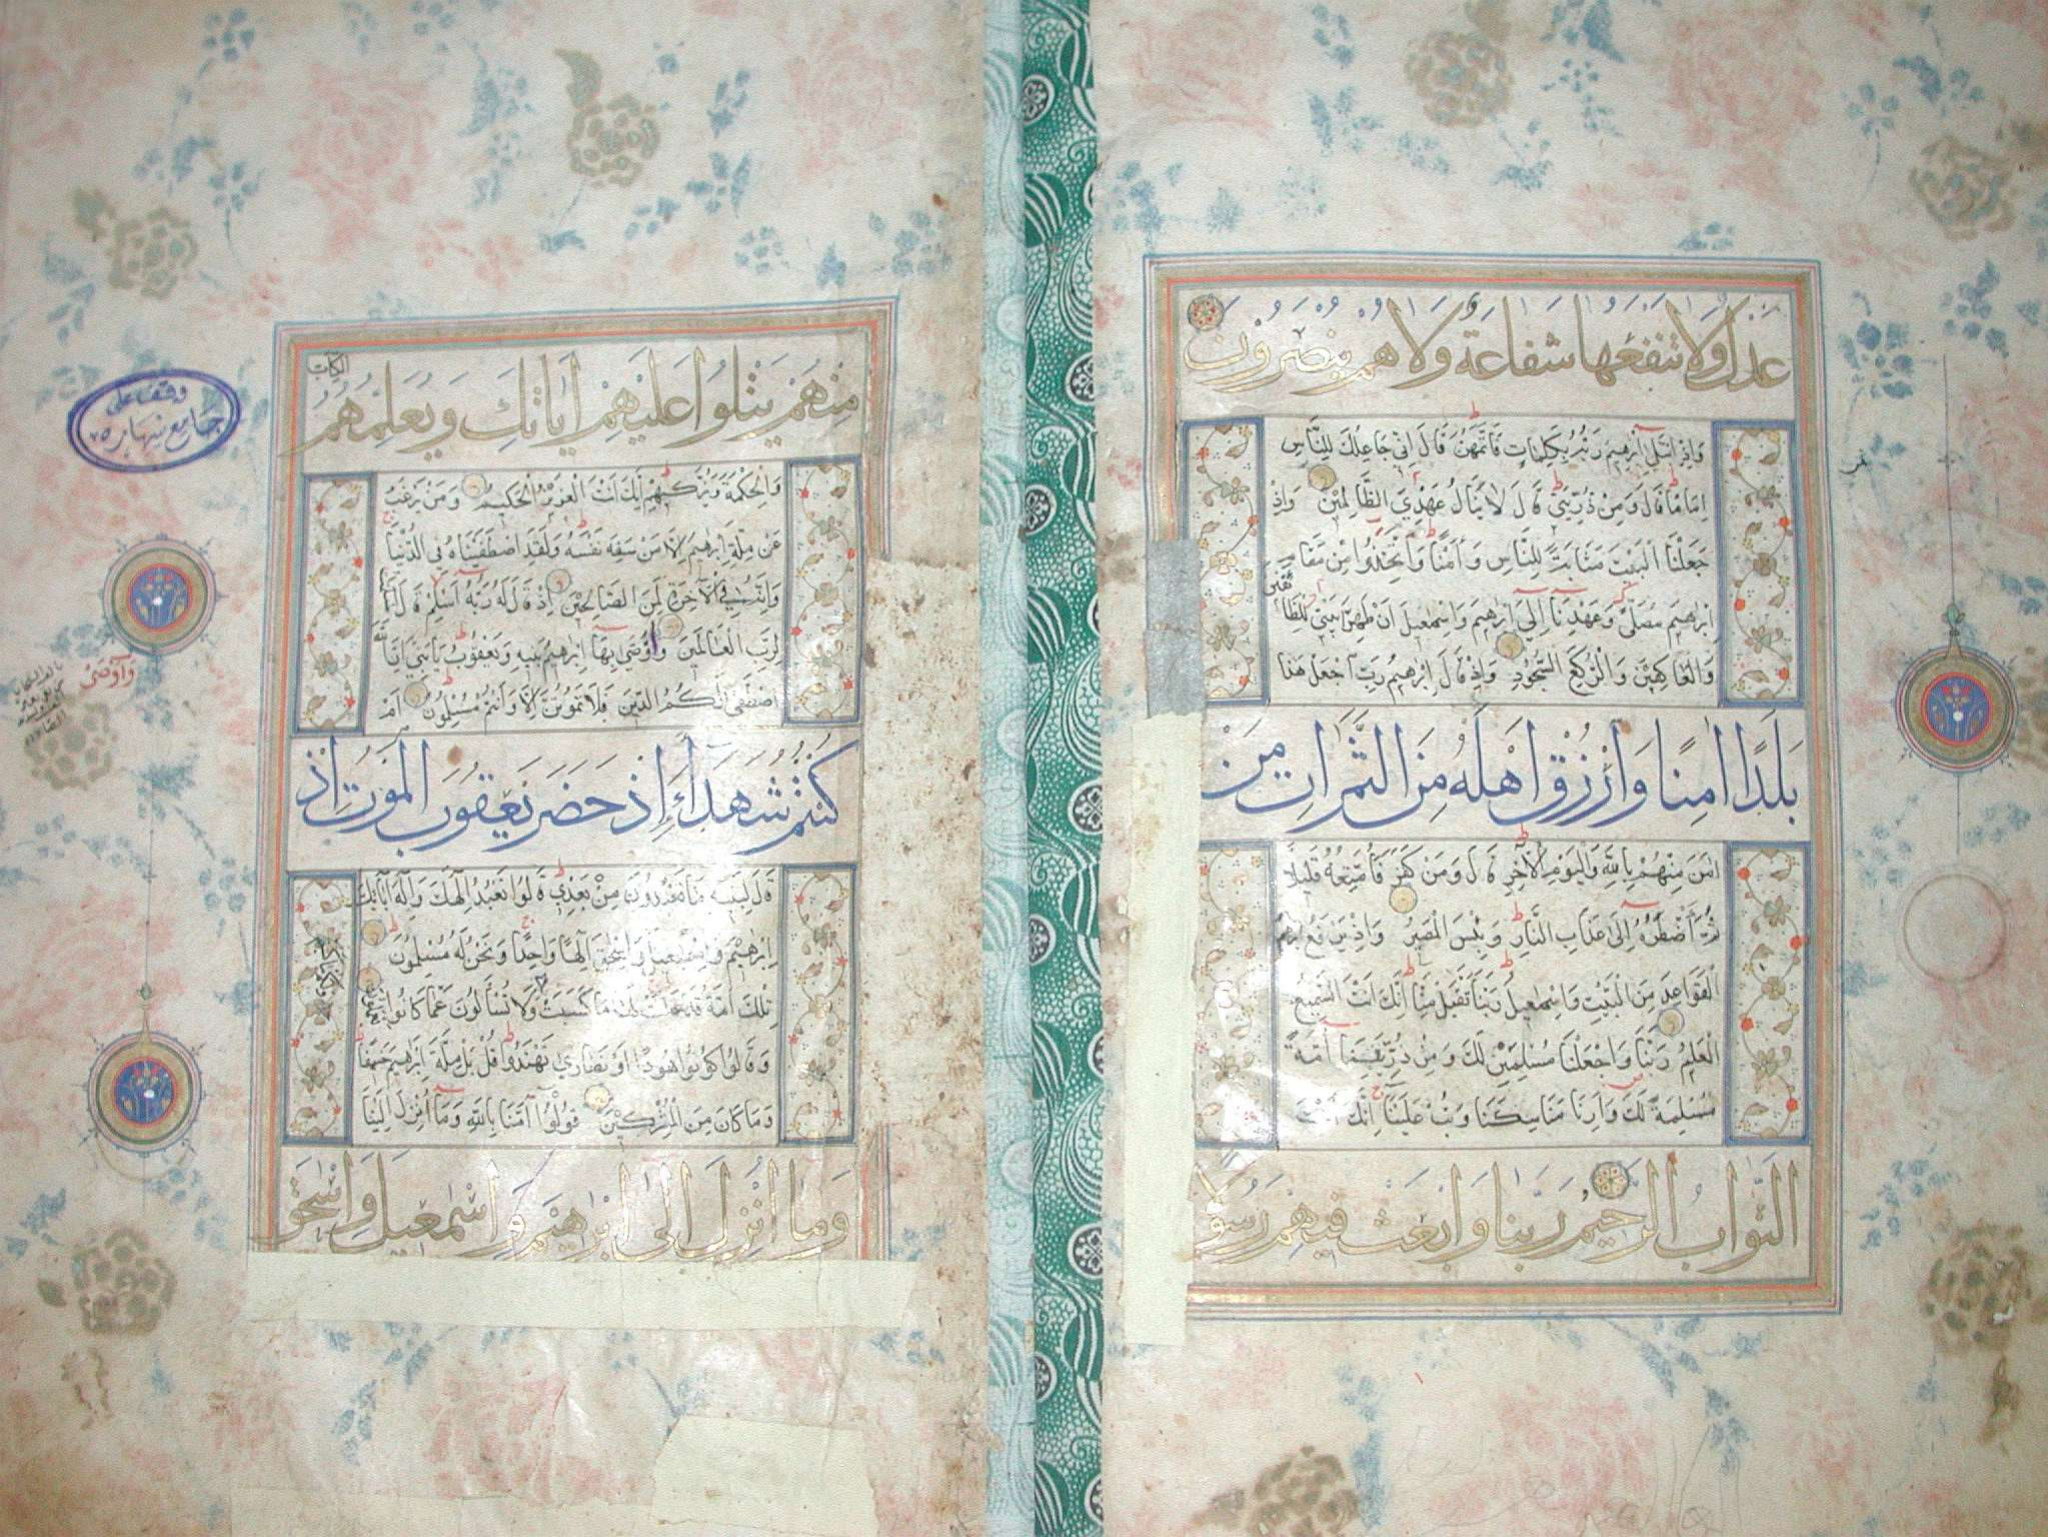 عدل ولا تنفعها شفاعة ولا هم ينصرون
واذ ابتلى ابرهيم ربه بكلمات فاتمهن قال اني جاعلك للناس
اماما قال ومن ذريتي قال لا ينال عهدي الظالمين واذ
جعلنا البيت مثابة للناس وامنا واتخذوا من مقام
ابرهيم مصلى وعهدنا الى ابرهيم واسمعيل ان طهرا بيتي للطا
ئفين
والعاكفين والركع السجود واذ قال ابرهيم رب اجعل هذا
بلدا امنا وارزق اهله من الثمرات من
امن منهم بالله واليوم الآخر قال ومن كفر فامتعه قليلا
ثم اضطره الى عذاب النار وبئس المصير واذ يرفع ابرهيم
القواعد من البيت واسمعيل ربنا تقبل منا انك انت السميع
العليم ربنا واجعلنا مسلمين لك ومن ذريتنا أمة
مسلمة لك وارنا مناسكنا وتب علينا انك انت
التواب الرحيم ربنا وابعث فيهم رسولا
منهم يتلوا عليهم اياتك ويعلمهم
الكتاب
والحكمة ويزكيهم انك انت العزيز الحكيم ومن يرغب
عن ملة ابرهيم الا من سفه نفسه ولقد اصطفيناه في الدنيا
وانه في الآخرة لمن الصالحين اذ قال له ربه اسلم قال اسلمت
لرب العالمين واوصى بها ابرهيم بنيه ويعقوب يابني ان الله
اصطفى لكم الدين فلا تموتن الا وانتم مسلمون ام
كنتم شهداء اذ حضر يعقوب الموت اذ
قال لبنيه ما تعبدون من بعدي قالوا نعبد الهك واله ابائك
ابرهيم واسمعيل واسحق الها واحدا ونحن له مسلمون
تلك امة قد خلت لها ما كسبت ولا تسألون عما كانوا
وقالوا كونوا هودا او نصارى تهتدوا قل بل ملة ابرهيم حنيفا
وما كان من المشركين قولوا آمنا بالله وما أنزل الينا
وما انزل الى ابرهيم واسمعيل واسحق
وقف على
جامع نهاره
وآوصى